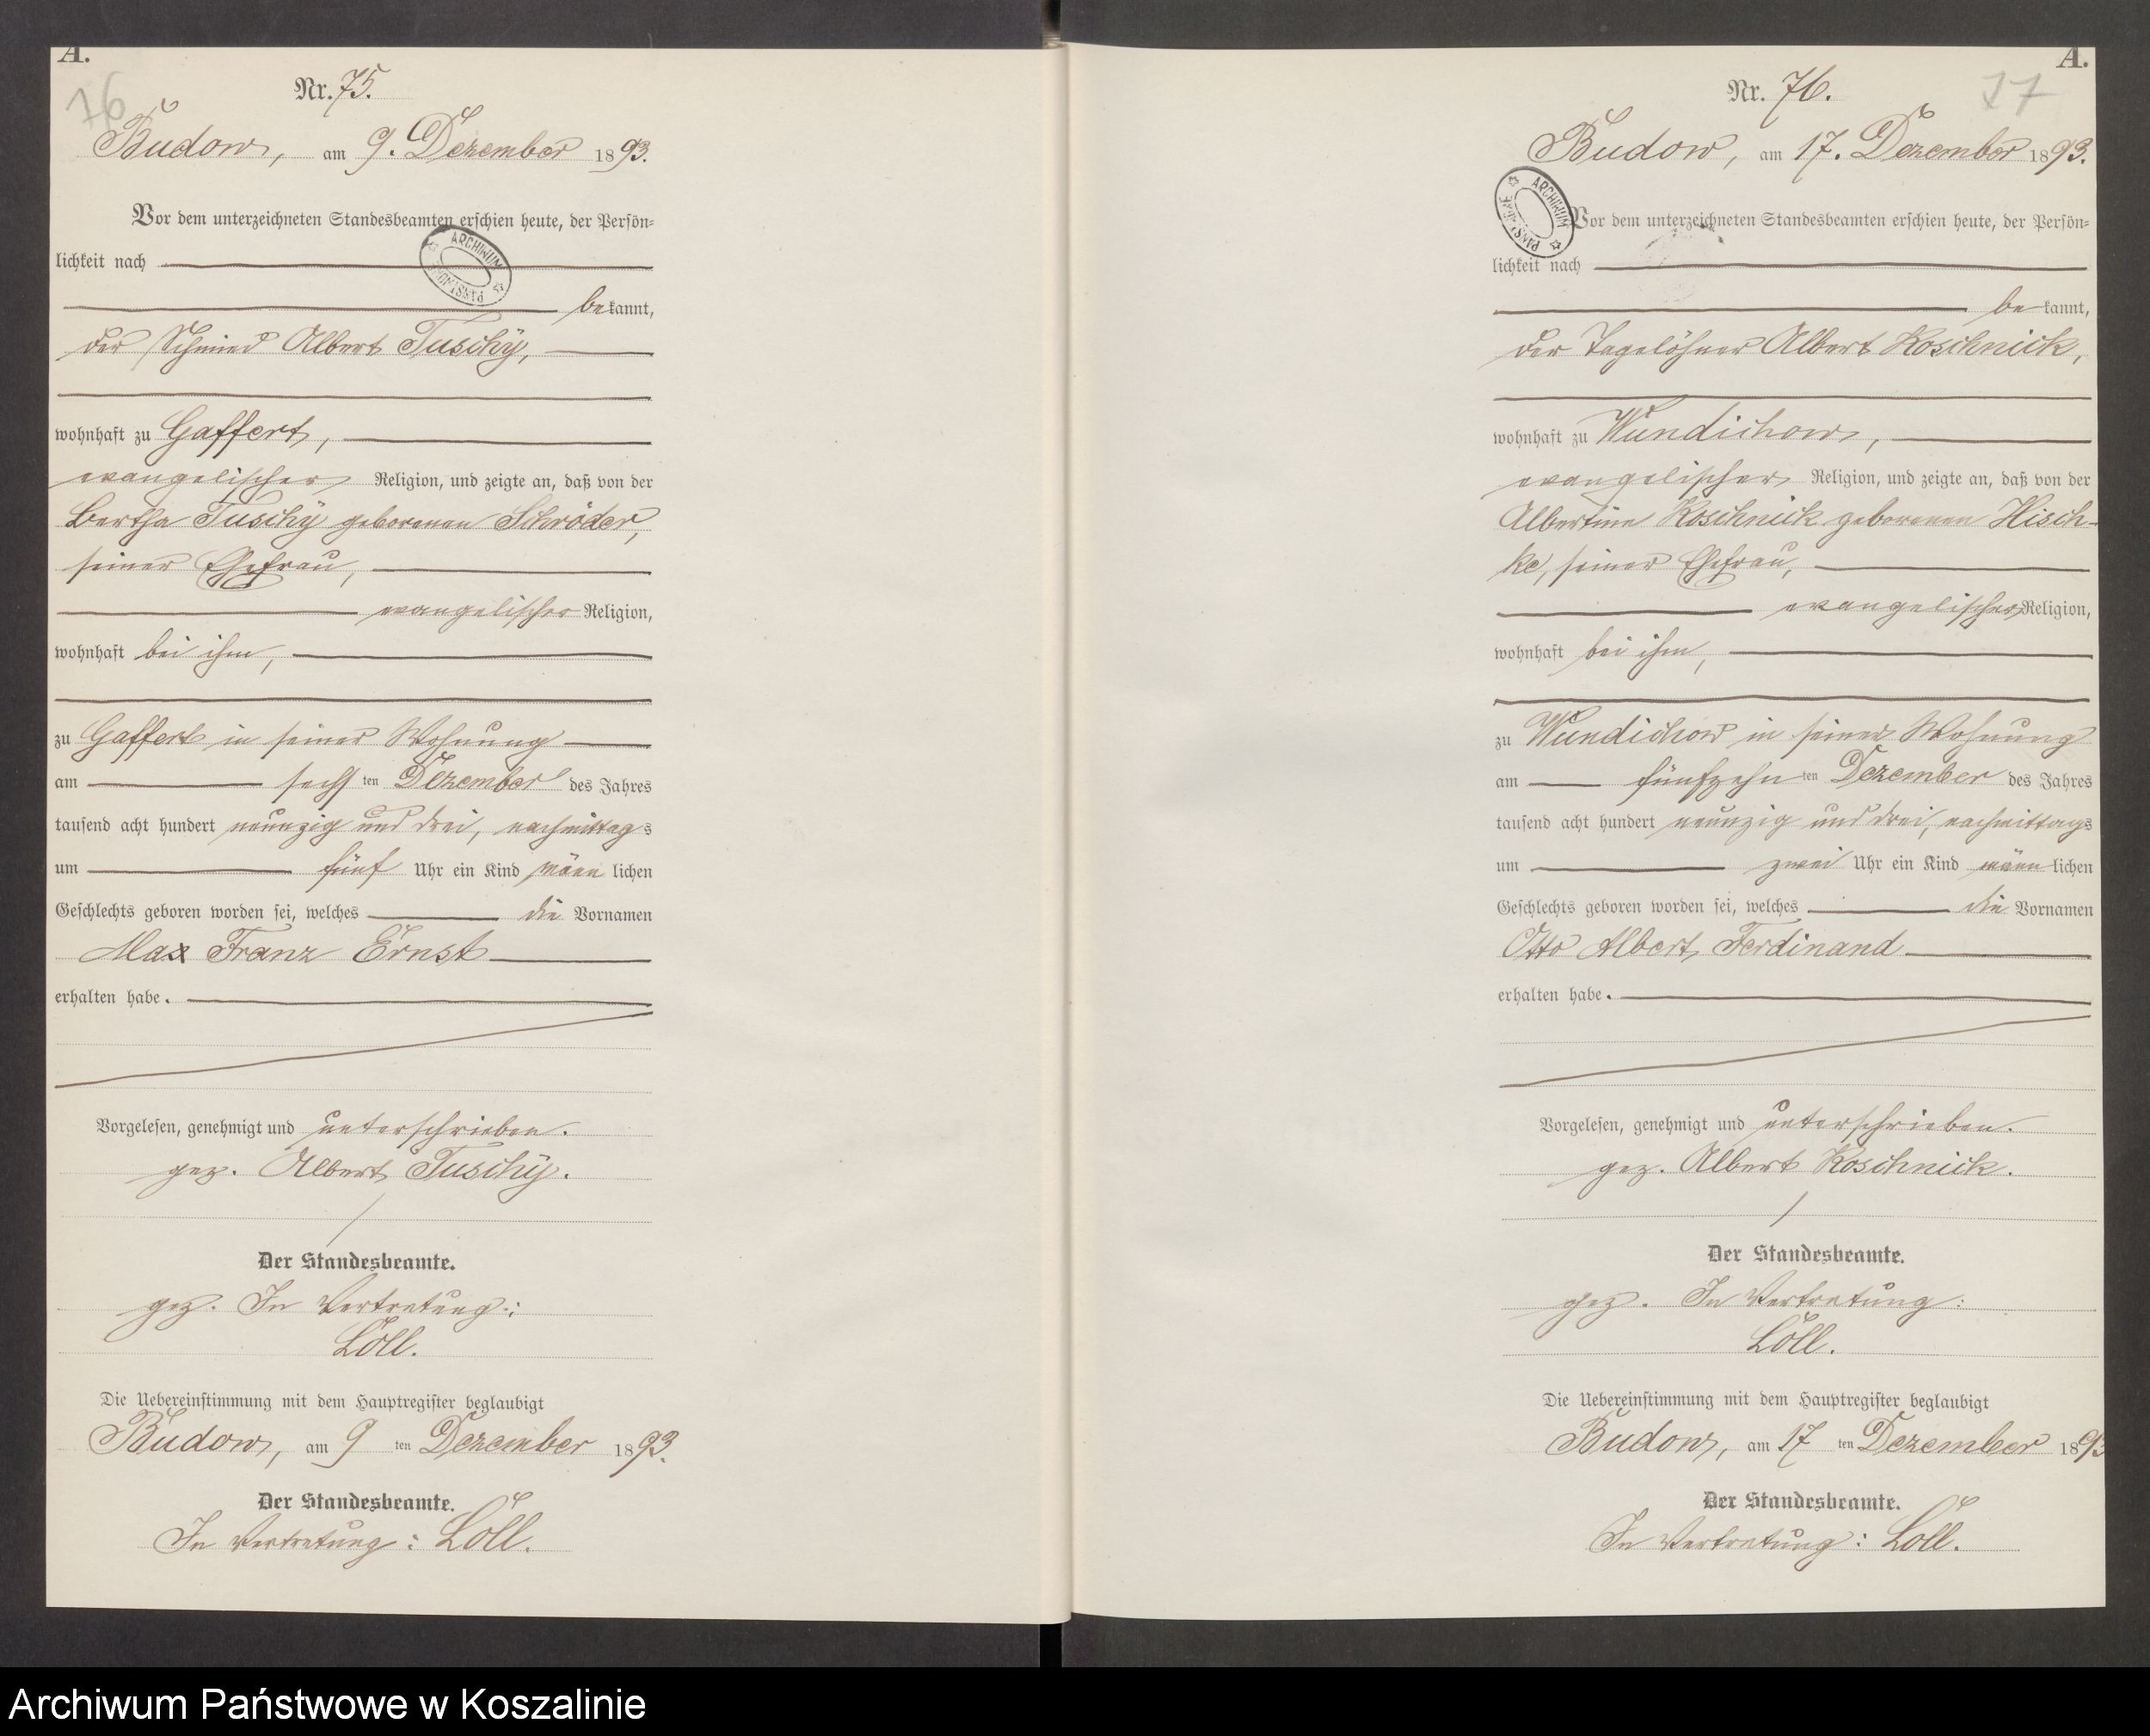 A.
76
Nr. 75.
Budow, am 9. Dezember 1893.
Vor dem unterzeichneten Standesbeamten erschien heute, der Persön-
lichkeit nach
bekannt,
der Schmied Albert Tuschÿ,
wohnhaft zu Gaffert,
evangelischer Religion, und zeigte an, daß von der
Bertha Tuschÿ geborenen Schröder,
seiner Ehefrau,
evangelischer Religion,
wohnhaft bei ihm,
zu Gaffert in seiner Wohnung
am sechsten Dezember des Jahres
tausend acht hundert neunzig und drei, nachmittags
um fünf Uhr ein Kind männlichen
Geschlechts geboren worden sei, welches die Vornamen
Max Franz Ernst
erhalten habe.
Vorgelesen, genehmigt und unterschrieben.
gez. Albert Tuschÿ.
Der Standesbeamte.
gez. In Vertretung:
Löll.
Die Uebereinstimmung mit dem Hauptregister beglaubigt
Budow, am 9ten Dezember 1893.
Der Standesbeamte.
In Vertretung: Löll.
ARCHIWUM
A.
77
Nr. 76.
Budow, am 17. Dezember 1893.
ARCHIWUM
Vor dem unterzeichneten Standesbeamten erschien heute, der Persön-
lichkeit nach
bekannt,
der Tagelöhner Albert Koschnick,
wohnhaft zu Wundichow,
evangelischer Religion, und zeigte an, daß von der
Albertine Koschnick geborenen Hisch-
ke, seiner Ehefrau,
evangelischer Religion,
wohnhaft bei ihm,
zu Wundichow in seiner Wohnung
am fünfzehnten Dezember des Jahres
tausend acht hundert neunzig und drei, nachmittags
um zwei Uhr ein Kind männlichen
Geschlechts geboren worden sei, welches die Vornamen
Otto Albert Ferdinand
erhalten habe.
Vorgelesen, genehmigt und unterschrieben.
gez. Albert Koschnick.
Der Standesbeamte.
gez. In Vertretung:
Löll.
Die Uebereinstimmung mit dem Hauptregister beglaubigt
Budow, am 17ten Dezember 1893
Der Standesbeamte.
In Vertretung: Löll.
Archiwum Państwowe w Koszalinie